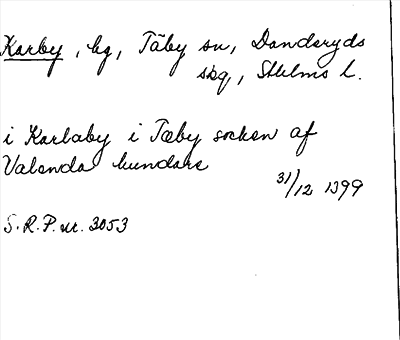 Karby, by, Täby sn, Danderyds
skg, Sthlms l.
i Karlaby i Tæby socken af
Valenda hundare
31/12 1399
S.R.P. nr. 3053